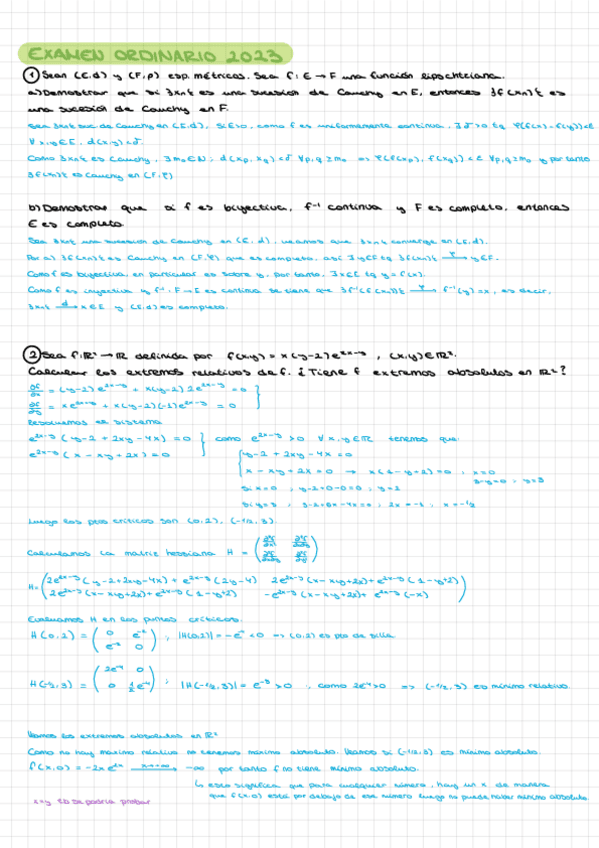 EXAMEN ORDINARIO 2023
① Sean (E,d) y (F,ρ) esp. métricos. Sea f: E → F una función lipschitziana.
a) Demostrar que si {xn} es una sucesión de Cauchy en E, entonces {f(xn)} es
una sucesión de Cauchy en F.
Sea {xn} suc de Cauchy en (E,d), Si ε>0, como f es uniformemente continua, ∃δ>0 tq ρ(f(x)-f(y))<ε
∀x,y∈E, d(x,y)<δ.
Como {xn} es Cauchy, ∃m0∈N; d(xp,xq)<δ ∀p,q≥m0 ⇒ ρ(f(xp), f(xq))<ε ∀p,q≥m0 y por tanto
{f(xn)} es Cauchy en (F,ρ)
b) Demostrar que si f es biyectiva, f⁻¹ continua y F es completo, entonces
E es completo.
Sea {xn} una sucesión de Cauchy en (E,d), veamos que {xn} converge en (E,d).
Por a) {f(xn)} es Cauchy en (F,ρ) que es completo, así ∃y∈F tq {f(xn)} →ρ y∈F.
Como f es biyectiva, en particular es sobre y, por tanto, ∃x∈E tq y=f(x).
Como f es inyectiva y f⁻¹: F→E es continua se tiene que {f⁻¹(f(xn))} →ρ f⁻¹(y)=x, es decir,
{xn} →d x∈E y (E,d) es completo.
② Sea f: ℝ² → ℝ definida por f(x,y) = x(y-2)e^(2x-y), (x,y)∈ℝ².
Calcular los extremos relativos de f. ¿Tiene f extremos absolutos en ℝ²?
∂f/∂x = (y-2)e^(2x-y) + x(y-2)2e^(2x-y) = 0 }
∂f/∂y = xe^(2x-y) + x(y-2)(-1)e^(2x-y) = 0
Resolvemos el sistema
e^(2x-y)(y-2+2xy-4x) = 0 } como e^(2x-y) > 0 ∀x,y∈ℝ tenemos que:
e^(2x-y)(x-xy+2x) = 0 { y-2+2xy-4x = 0
x-xy+2x = 0 → x(1-y+2) = 0, x=0
3-y=0, y=3
Si x=0, y-2+0-0=0, y=2
Si y=3, 3-2+6x-4x=0, 2x=-1, x=-1/2
Luego los ptos críticos son (0,2), (-1/2,3).
Calculamos la matriz hessiana H = (∂²f/∂x² ∂²f/∂x∂y
∂²f/∂x∂y ∂²f/∂y²)
H = (2e^(2x-y)(y-2+2xy-4x) + e^(2x-y)(2y-4) 2e^(2x-y)(x-xy+2x) + e^(2x-y)(1-y+2)
2e^(2x-y)(x-xy+2x) + e^(2x-y)(1-y+2) -e^(2x-y)(x-xy+2x) + e^(2x-y)(-x))
Evaluamos H en los puntos críticos.
H(0,2) = (0 e⁻²
e⁻² 0) ; |H(0,2)| = -e⁻⁴ < 0 ⇒ (0,2) es pto de silla.
H(-1/2,3) = (2e⁻⁴ 0
0 ½e⁻⁴) ; |H(-1/2,3)| = e⁻⁸ > 0, como 2e⁻⁴>0 ⇒ (-1/2,3) es mínimo relativo.
Veamos los extremos absolutos en ℝ²
Como no hay máximo relativo no tenemos máximo absoluto. Veamos si (-1/2,3) es mínimo absoluto.
f(x,0) = -2xe^(2x) →x→+∞ -∞ por tanto f no tiene mínimo absoluto.
↳ esto significa que para cualquier número, hay un x de manera
que f(x,0) está por debajo de ese número luego no puede haber mínimo absoluto.